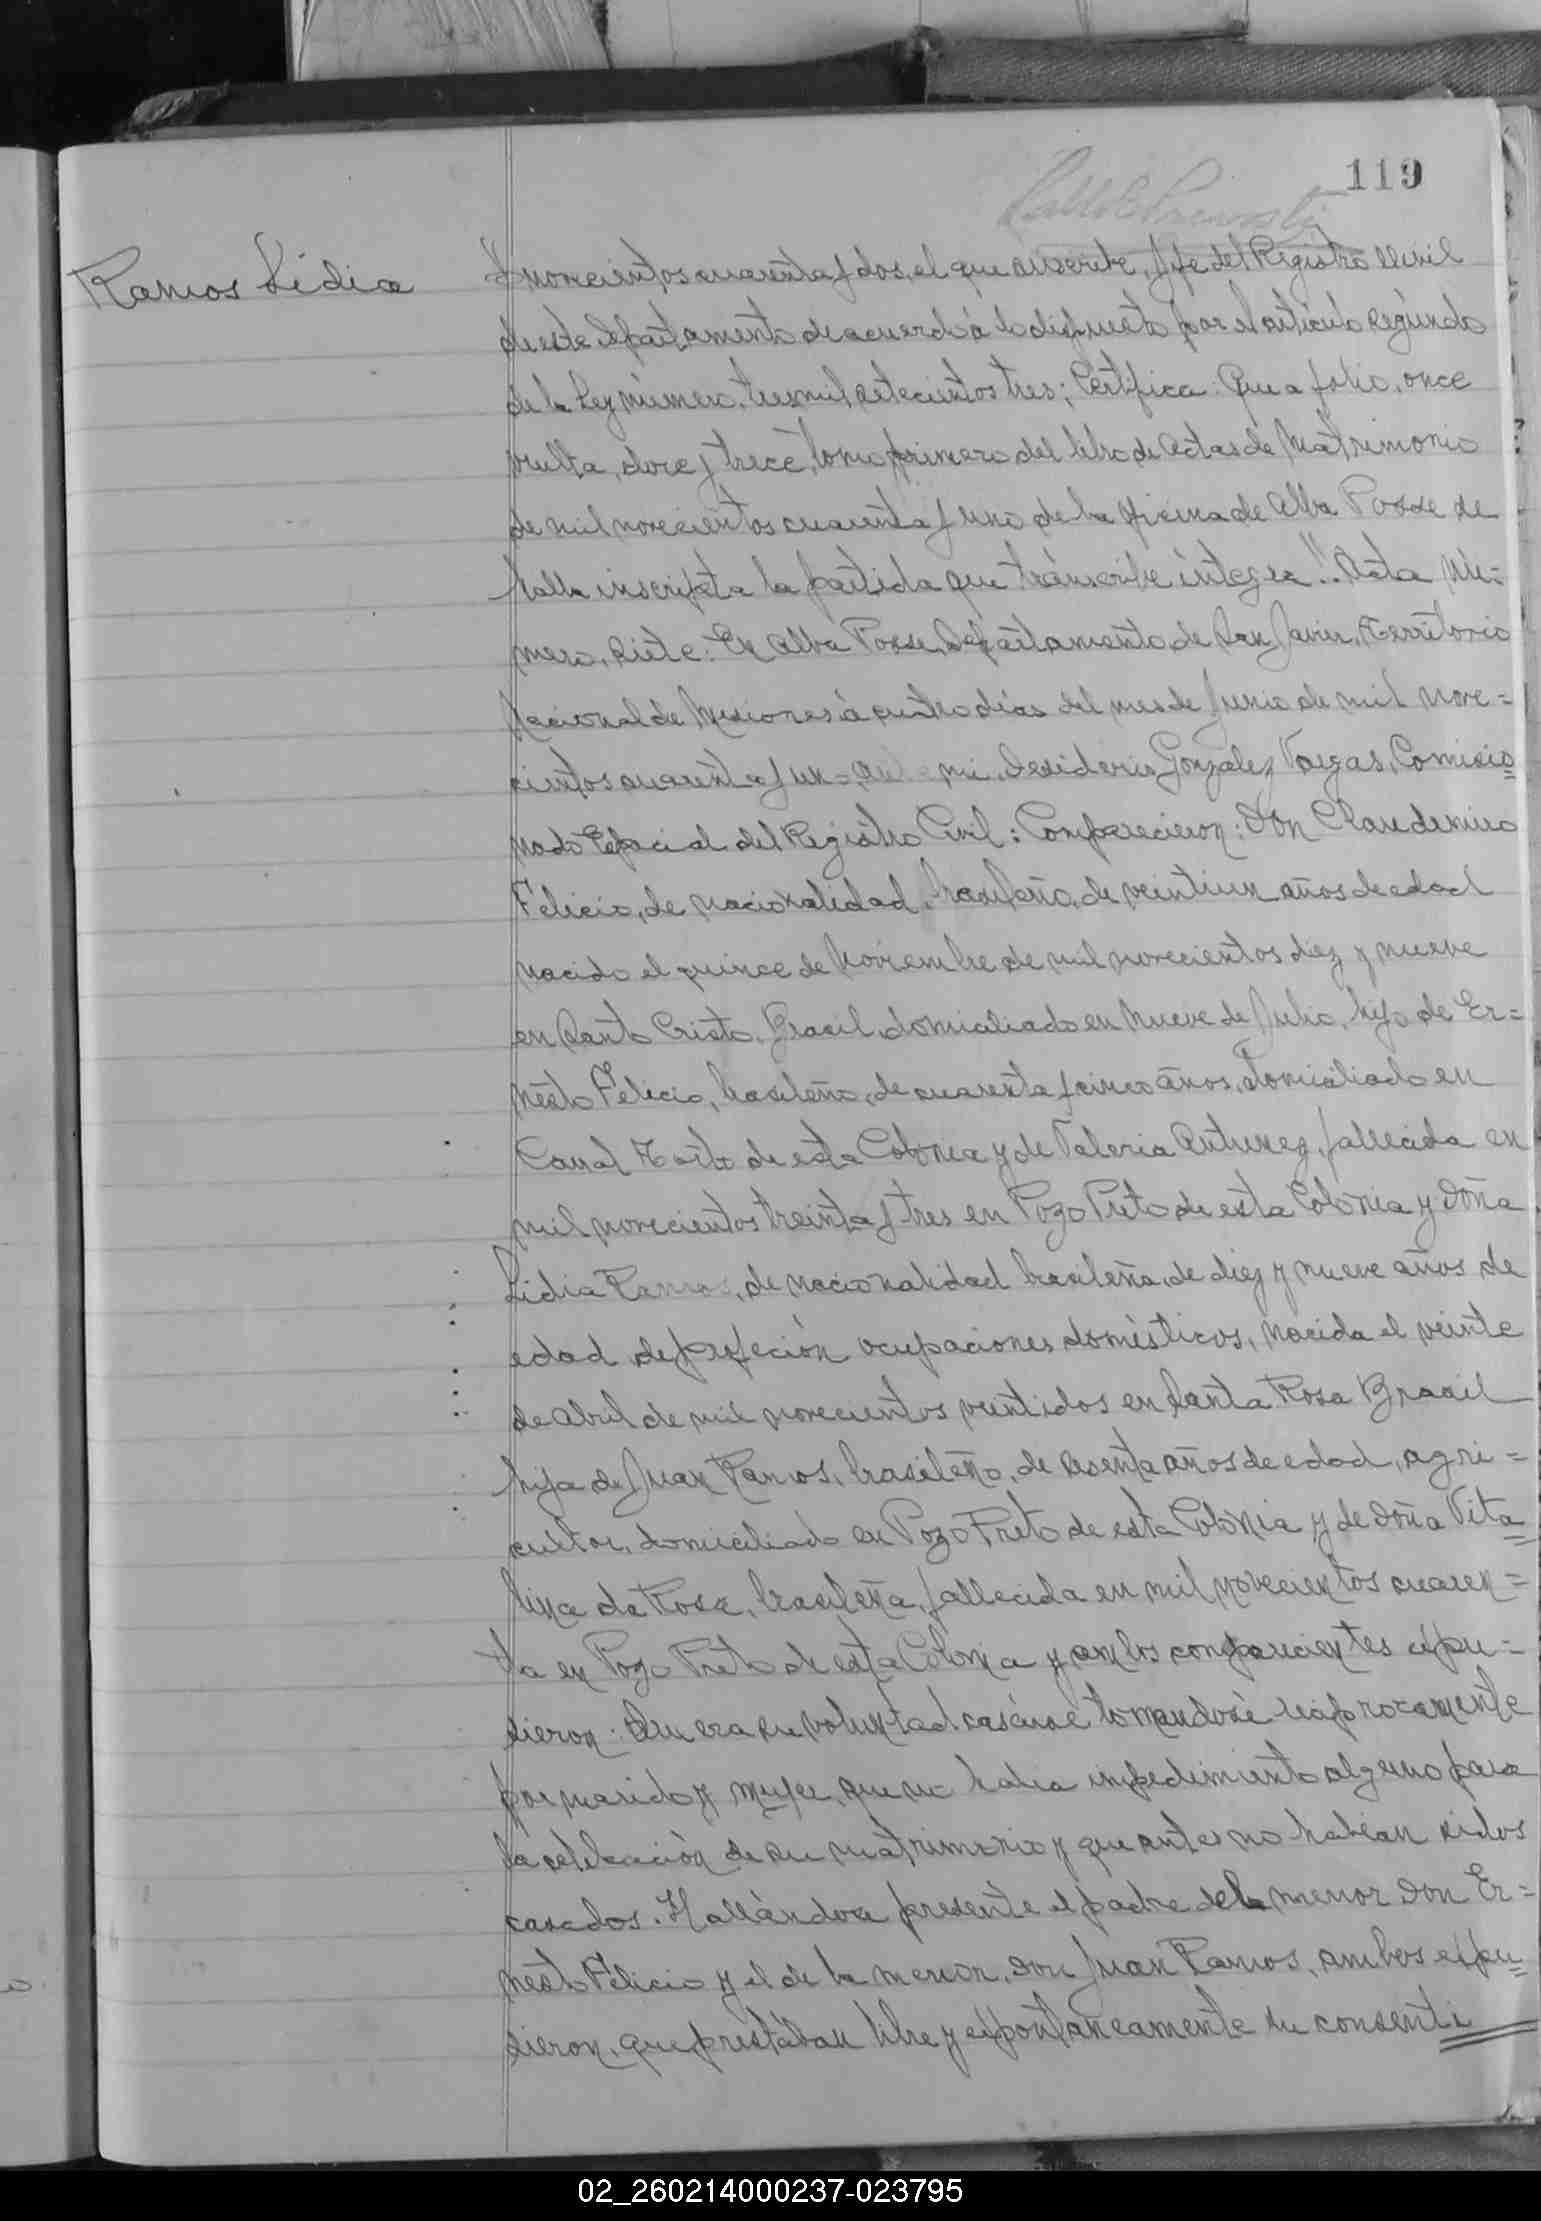 119
Ramos Lidia
novecientos cuarenta y dos, el que suscribe, Jefe del Registro Civil
de este Departamento de acuerdo á lo dispuesto por el artículo segundo
de la Ley número, tresmil setecientos tres; Certifica: Que a folio, once
vuelta, doce y trece, tomo primero del libro de Actas de Matrimonio
de mil novecientos cuarenta y uno de la oficina de Alba Posse se
halla inscripta la partida que transcribe íntegra: "Acta Nú=
mero, siete: En Alba Posse, Departamento de San Javier, Territorio
Nacional de Misiones à cuatro días del mes de Junio de mil nove=
cientos cuarenta y un=, ante mi, Desiderio Gonzalez Vargas, Comisio=
nado Especial del Registro Civil: Comparecieron: Don Claudemiro
Felicio, de nacionalidad, brasileño, de veintiun años de edad
nacido el quince de Noviembre de mil novecientos diez y nueve
en Santo Cristo, Brasil, domiciliado en Nueve de Julio, hijo de Er=
nesto Felicio, brasileño, de cuarenta y cinco años, domiciliado en
Canal Torto de esta Colonia y de Valeria Antunez, fallecida en
mil novecientos treinta y tres en Pozo Preto de esta Colonia y Doña
Lidia Ramos, de nacionalidad brasileña, de diez y nueve años de
edad, de profeción ocupaciones domésticos, nacida el veinte
de Abril de mil novecientos veintidos en Santa Rosa Brasil
hija de Juan Ramos, brasileño, de sesenta años de edad, agri=
cultor, domiciliado en Pozo Preto de esta Colonia y de Doña Vita=
lina da Rosa, brasileña, fallecida en mil novecientos cuaren=
ta en Pozo Preto de esta Colonia y ambos comparecientes expu=
sieron: Que era su voluntad casárse tomándose reciprocamente
por marido y mujer, que no habia impedimiento alguno para
la celebración de su matrimonio y que antes no habían sidos
casados. Hallándose presente el padre del menor Don Er=
nesto Felicio y el de la menor, Don Juan Ramos, ambos expu=
sieron, que prestában libre y espontáneamente su consenti
02_260214000237-023795